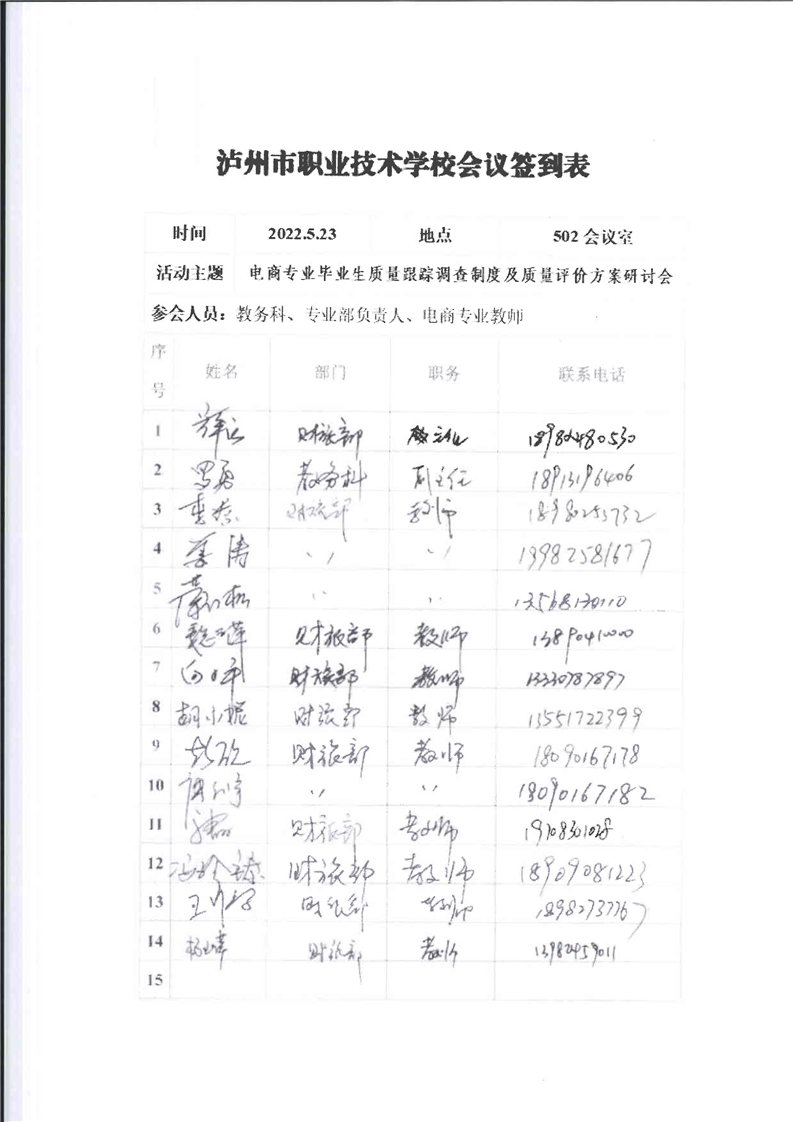 泸州市职业技术学校会议签到表
时间 2022.5.23 地点 502会议室
活动主题 电商专业毕业生质量跟踪调查制度及质量评价方案研讨会
参会人员：教务科、专业部负责人、电商专业教师
序号 姓名 部门 职务 联系电话
1 财旅部 18982480530
2 罗勇 教务科 副主任 18913196406
3 财旅部 教师 18980253732
4 〃 〃 19982581677
5 〃 〃 13568130110
6 财旅部 教师
7 财旅部 教师 13330787897
8 胡小妮 财旅部 教师 13551722399
9 彭欣 财旅部 教师 18090167178
10 〃 〃 18090167182
11 财旅部 教师 19108301028
12 财旅部 教师 18909081223
13 财旅部 教师 18982737767
14 财旅部 教师 13982459011
15